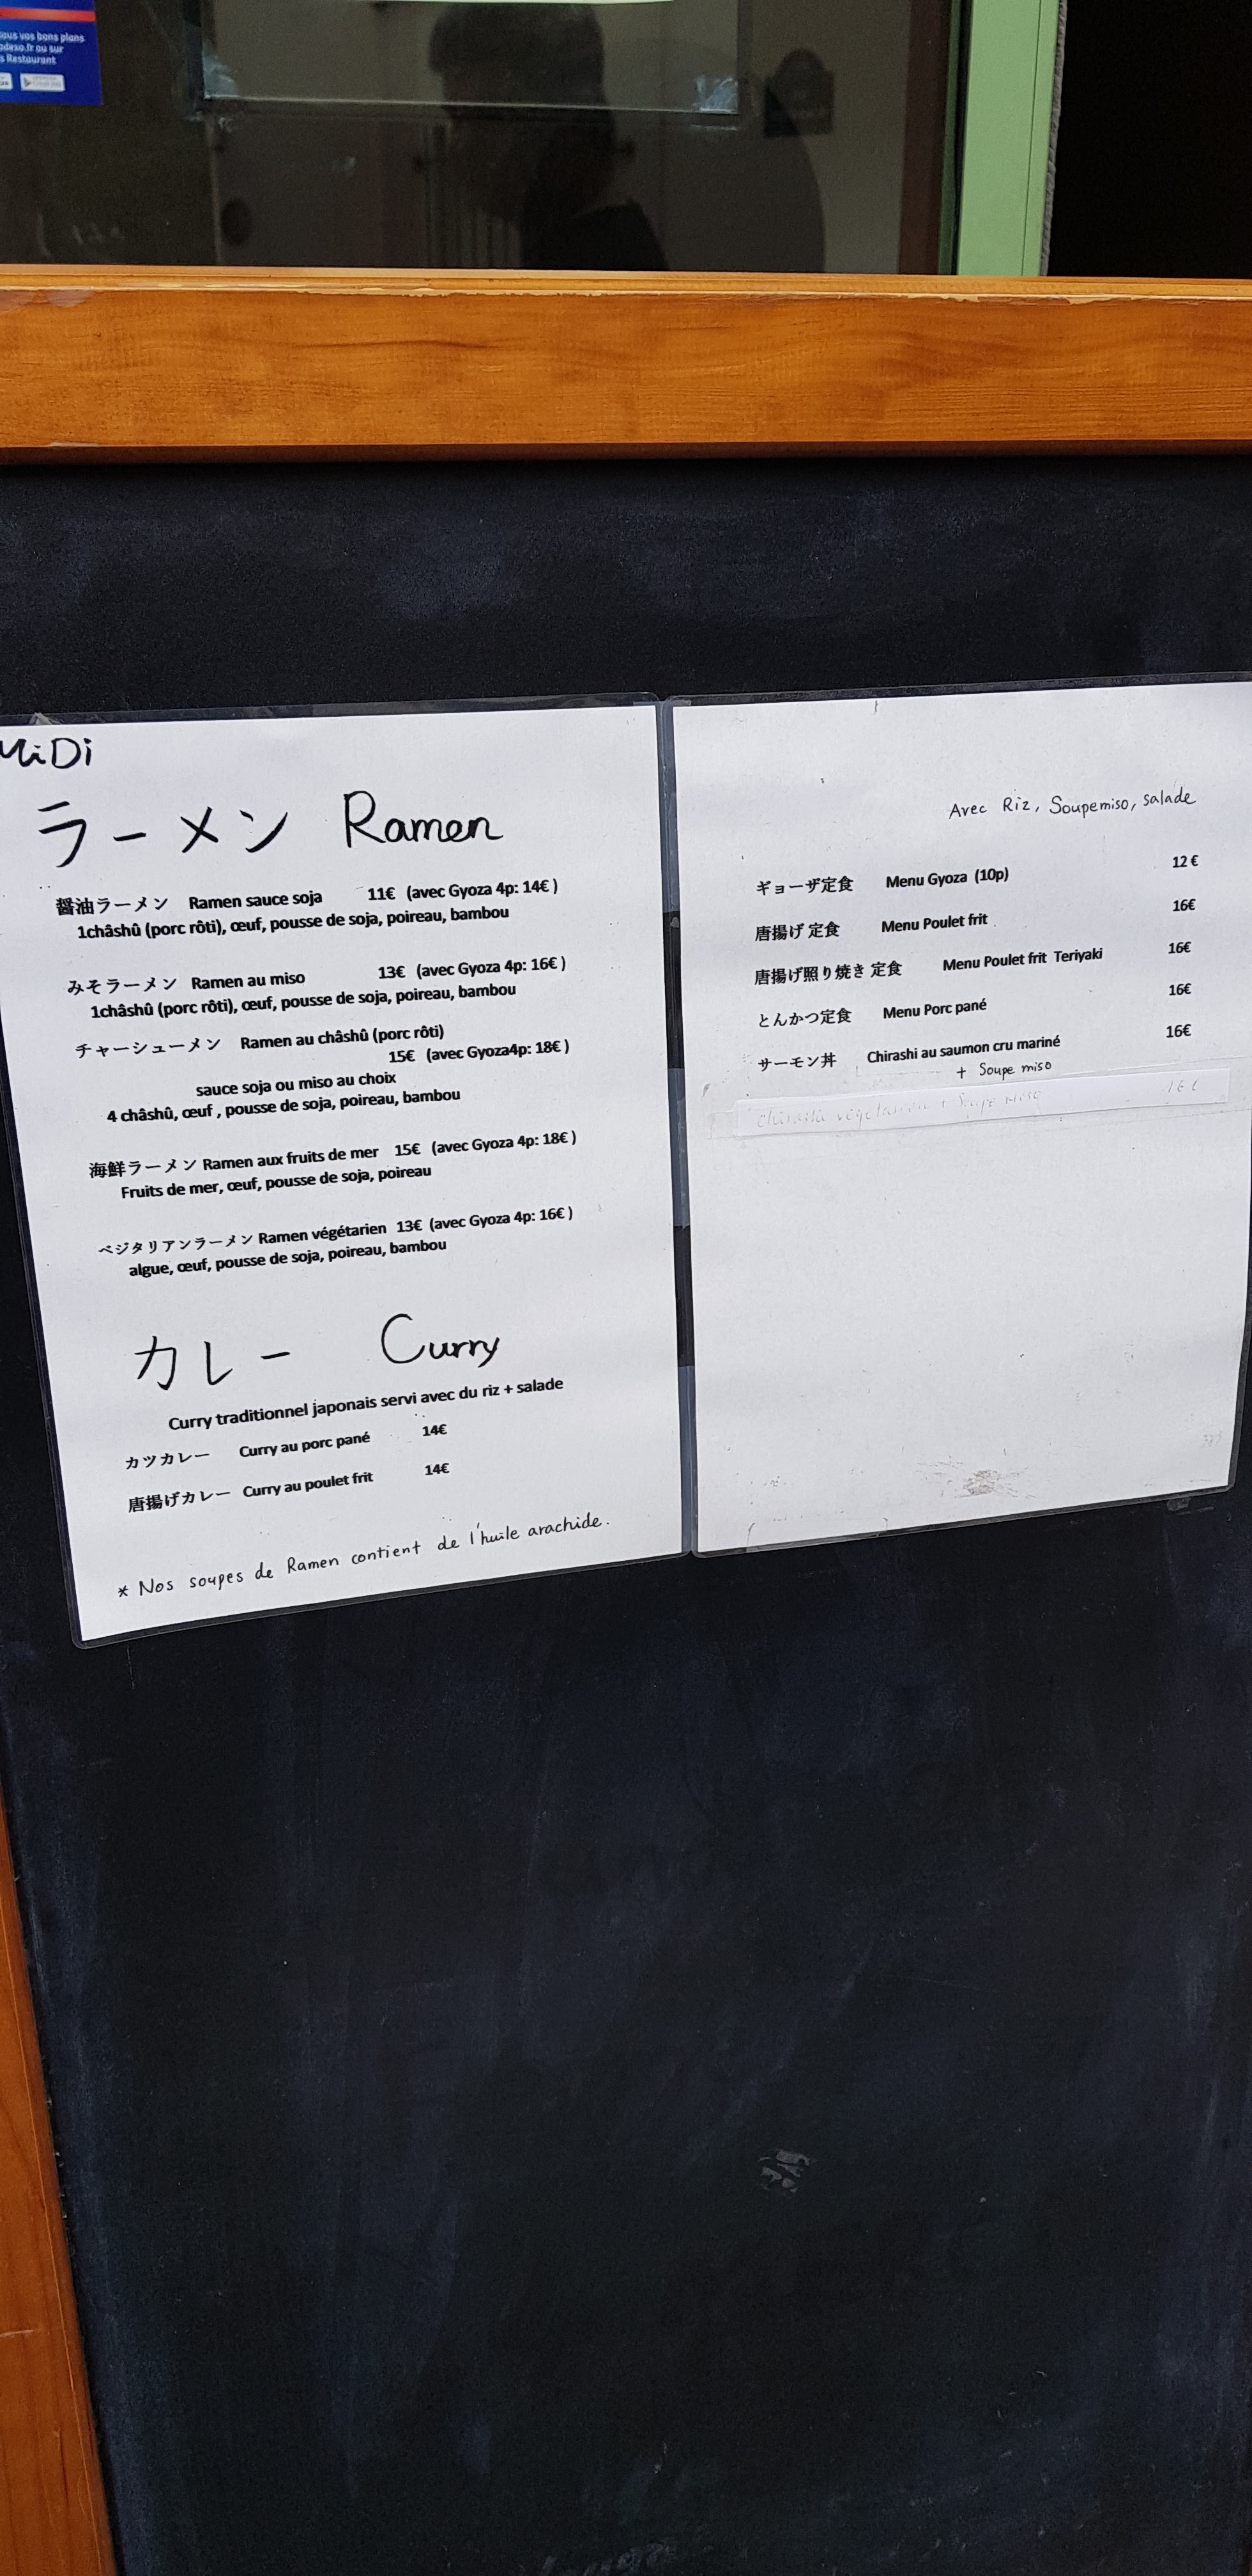 ous vos bons plans
odexo.fr ou sur
s Restaurant
MiDi
ラーメン Ramen
醤油ラーメン Ramen sauce soja 11€ (avec Gyoza 4p: 14€ )
1châshû (porc rôti), œuf, pousse de soja, poireau, bambou
みそラーメン Ramen au miso 13€ (avec Gyoza 4p: 16€ )
1châshû (porc rôti), œuf, pousse de soja, poireau, bambou
チャーシューメン Ramen au châshû (porc rôti)
15€ (avec Gyoza4p: 18€ )
sauce soja ou miso au choix
4 châshû, œuf , pousse de soja, poireau, bambou
海鮮ラーメン Ramen aux fruits de mer 15€ (avec Gyoza 4p: 18€ )
Fruits de mer, œuf, pousse de soja, poireau
ベジタリアンラーメン Ramen végétarien 13€ (avec Gyoza 4p: 16€ )
algue, œuf, pousse de soja, poireau, bambou
カレー Curry
Curry traditionnel japonais servi avec du riz + salade
カツカレー Curry au porc pané 14€
唐揚げカレー Curry au poulet frit 14€
* Nos soupes de Ramen contient de l'huile arachide.
Avec Riz, Soupe miso, salade
ギョーザ定食 Menu Gyoza (10p) 12 €
唐揚げ 定食 Menu Poulet frit 16€
唐揚げ照り焼き 定食 Menu Poulet frit Teriyaki 16€
とんかつ定食 Menu Porc pané 16€
サーモン丼 Chirashi au saumon cru mariné 16€
+ Soupe miso
Chirashi végétarien + Soupe miso 16€